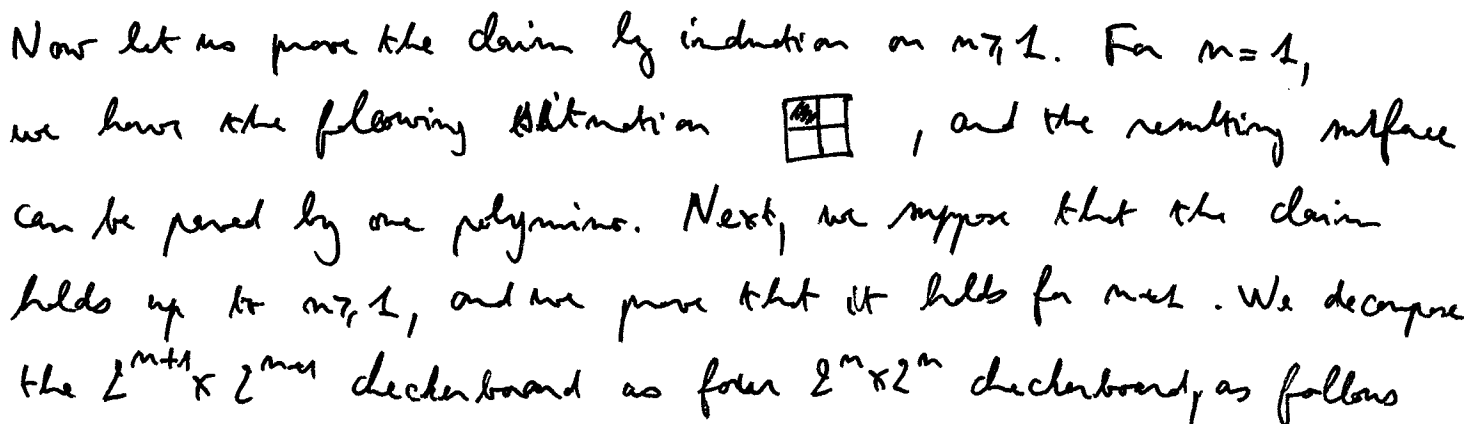 Now let us prove the claim by induction on n ⩾ 1. For n = 1,
we have the following situation , and the resulting surface
can be paved by one polymino. Next, we suppose that the claim
holds up to n ⩾ 1, and we prove that it holds for n+1. We decompose
the 2^{n+1} × 2^{n+1} checkerboard as four 2^n × 2^n checkerboard, as follows